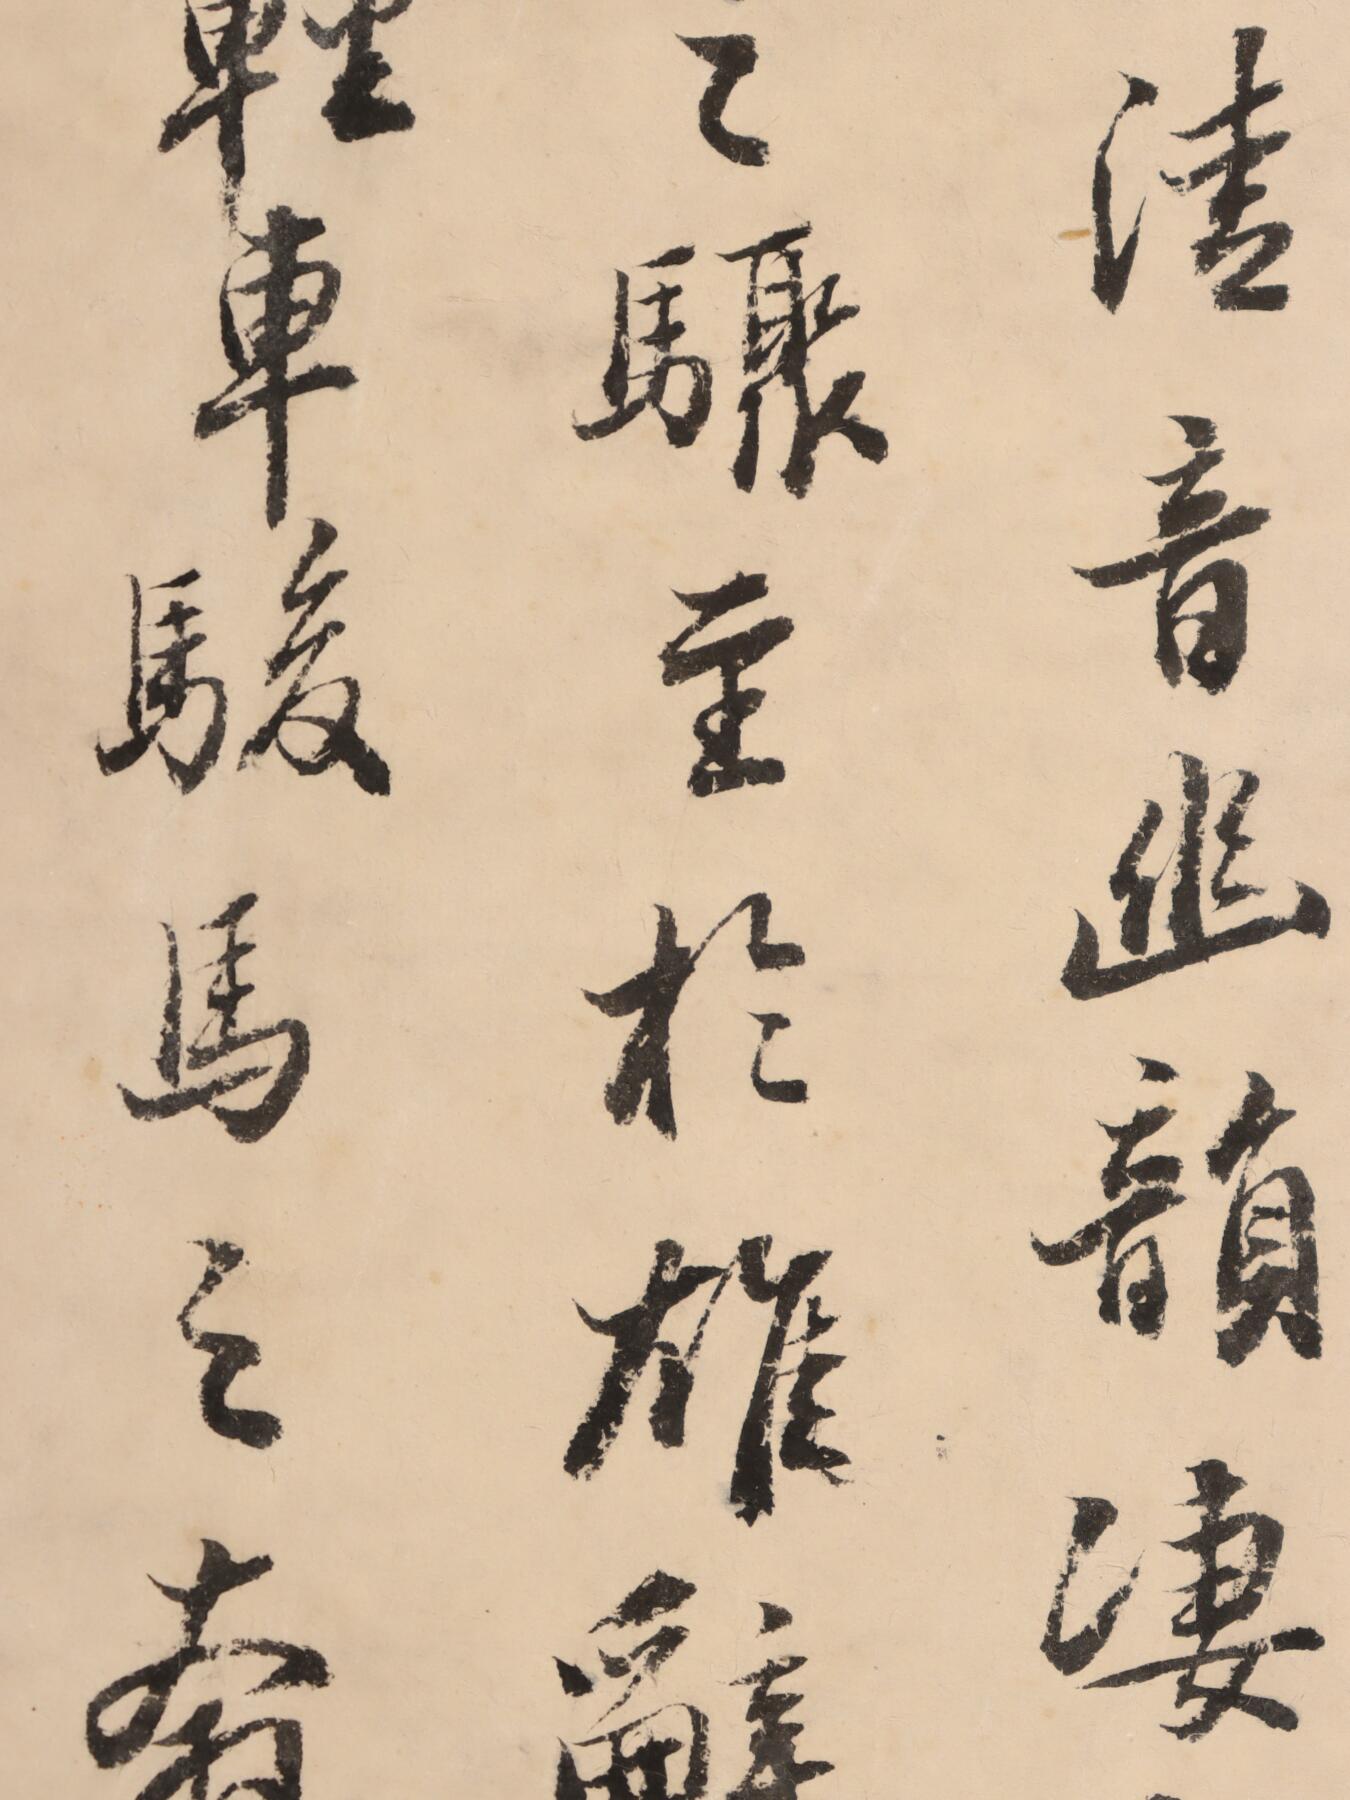 清音幽韻淒
之驟至於雄辭
輕車駿馬之奔